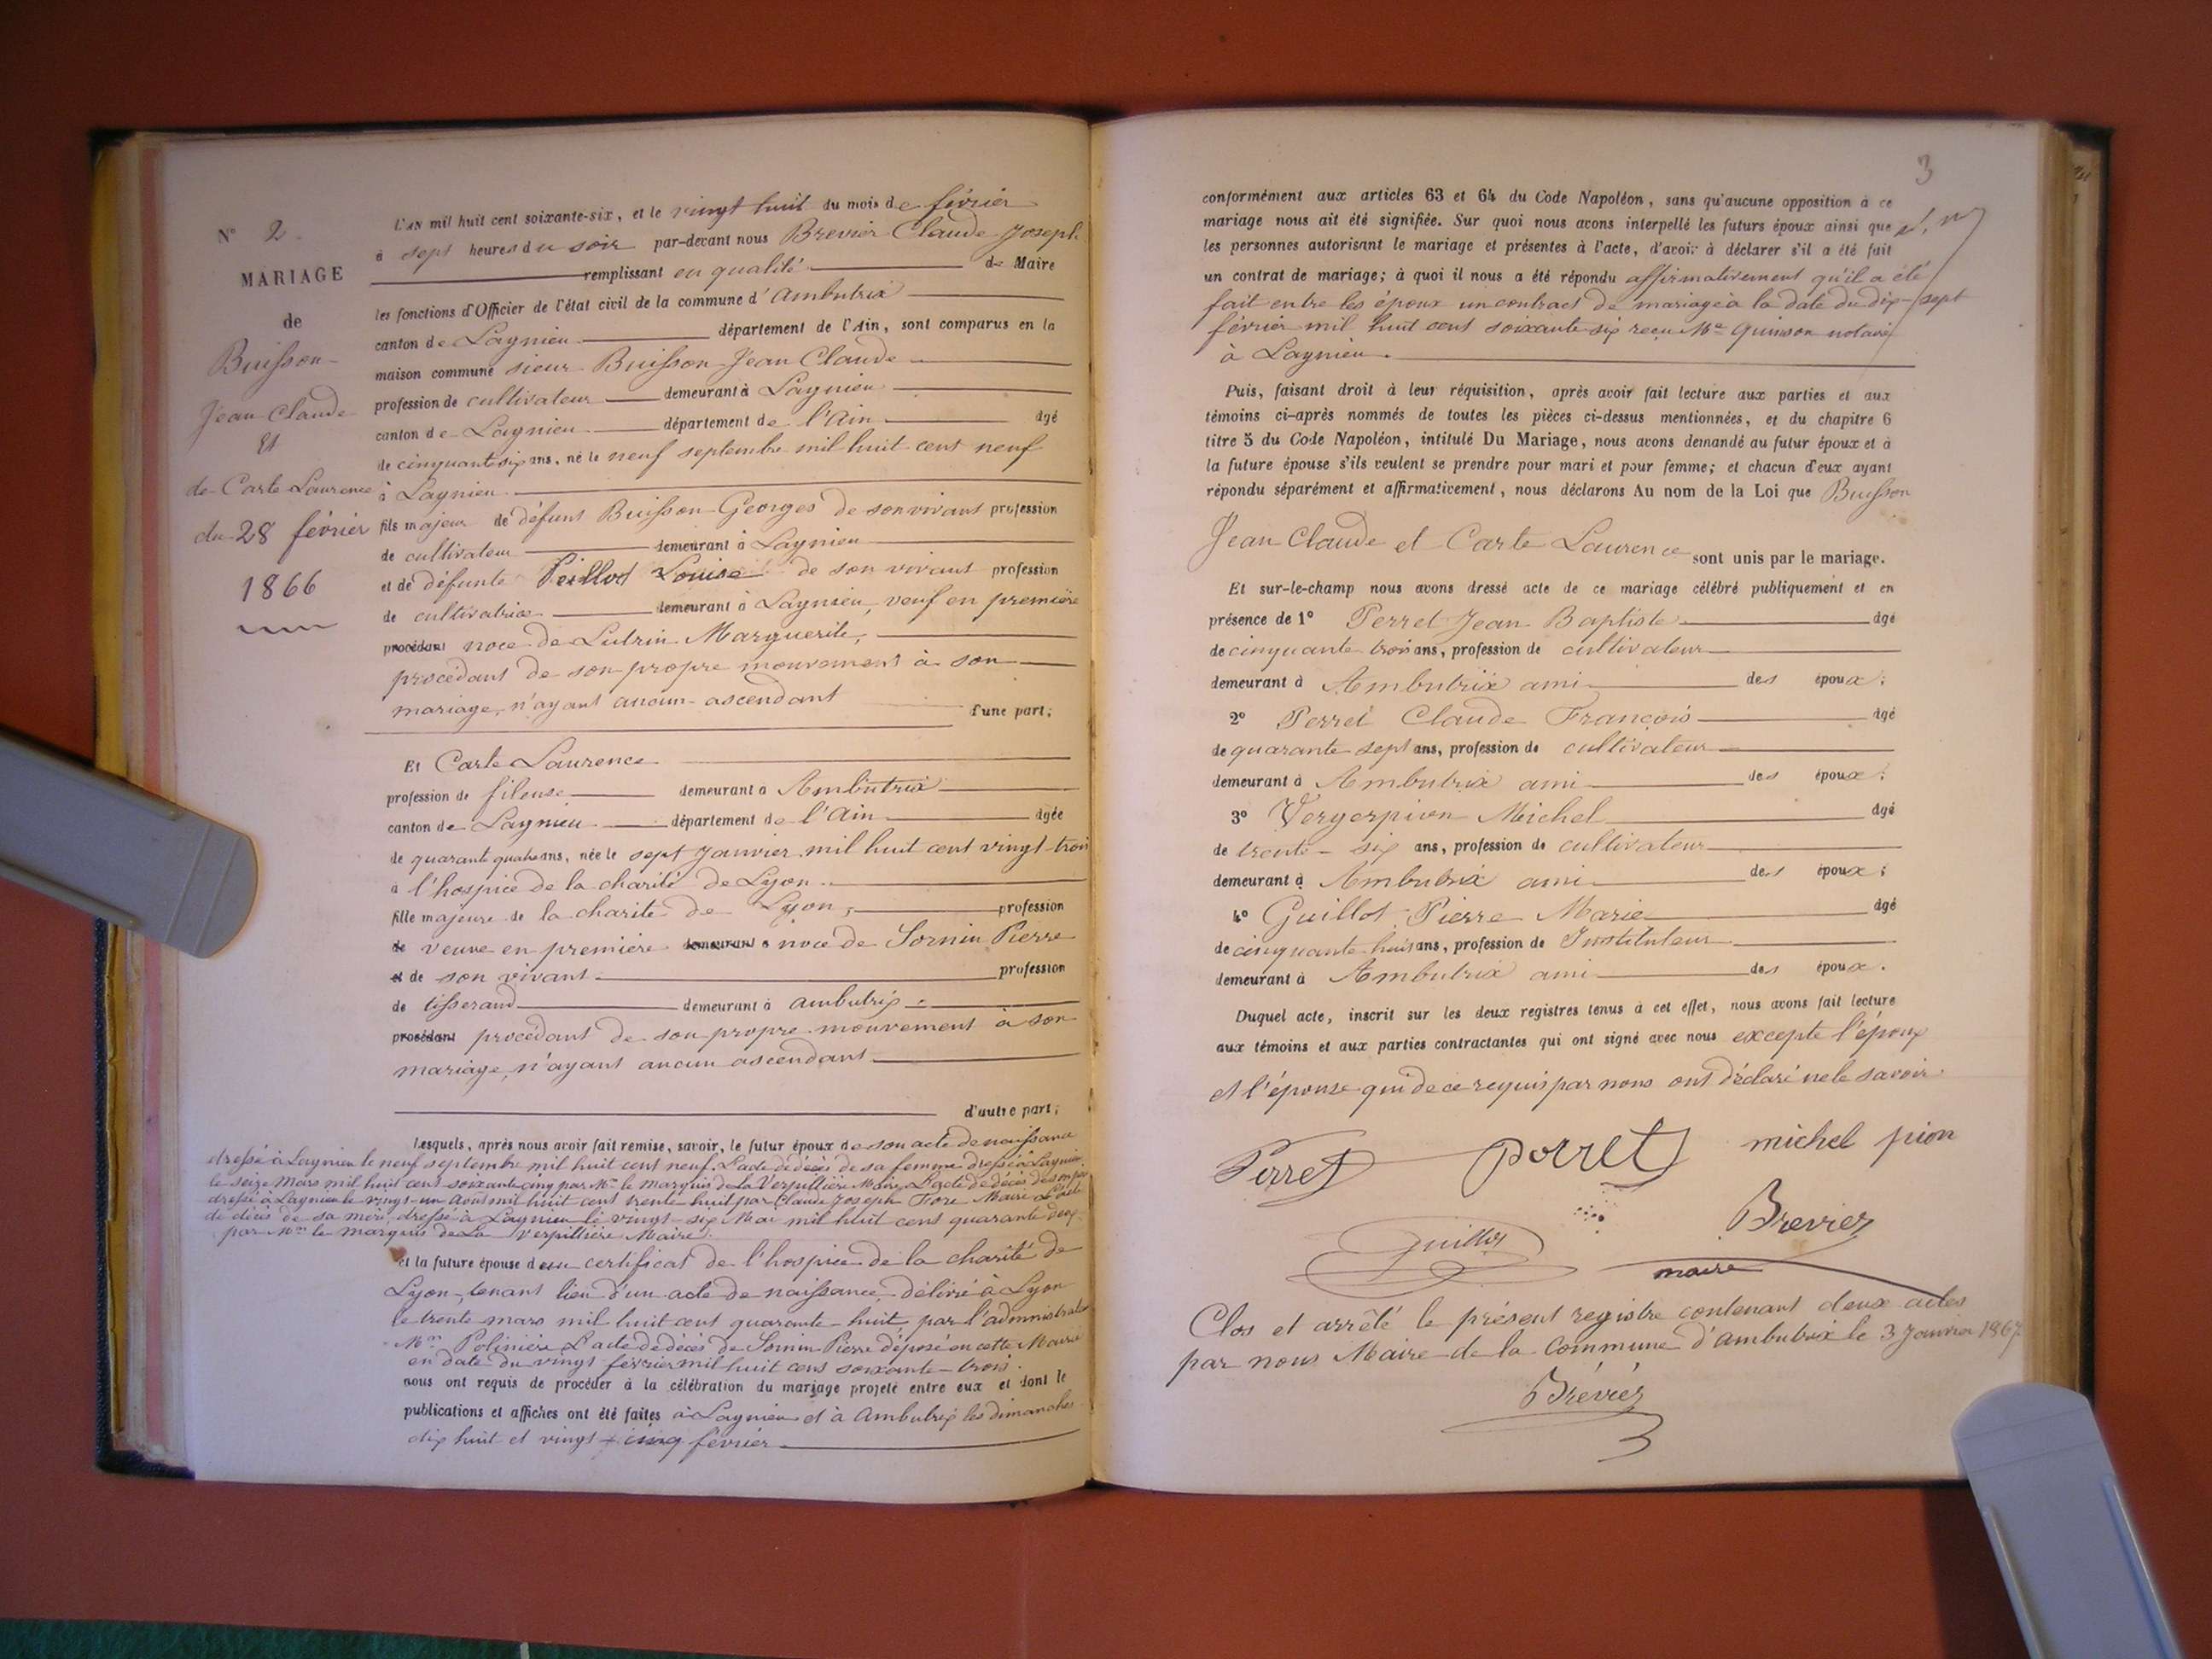 N° 2.
MARIAGE
de
Buisson
Jean Claude
Et
de Carte Laurence
du 28 février
1866
L'AN mil huit cent soixante-six, et le vingt huit du mois de février
à sept heures du soir par-devant nous Brevier Claude Joseph
remplissant en qualité de Maire
les fonctions d'Officier de l'état civil de la commune d'Ambutrix
canton de Lagnieu département de l'Ain, sont comparus en la
maison commune sieur Buisson Jean Claude
profession de cultivateur demeurant à Lagnieu
canton de Lagnieu département de l'Ain âgé
de cinquante six ans, né le neuf septembre mil huit cent neuf
à Lagnieu
fils majeur de défunt Buisson Georges de son vivant profession
de cultivateur demeurant à Lagnieu
et de défunte Peillod Louise de son vivant profession
de cultivatrice demeurant à Lagnieu, veuf en première
procédant noce de Lutrin Marguerite,
procédant de son propre mouvement à son
mariage, n'ayant aucun ascendant d'une part;
Et Carte Laurence
profession de fileuse demeurant à Ambutrix
canton de Lagnieu département de l'Ain âgée
de quarante quatre ans, née le sept Janvier mil huit cent vingt trois
à l'hospice de la charité de Lyon.
fille majeure de la charité de Lyon, profession
de veuve en première demeurant à noce de Sornin Pierre
et de son vivant profession
de tisserand demeurant à ambutrix
procédant procédant de son propre mouvement à son
mariage, n'ayant aucun ascendant
d'autre part;
Lesquels, après nous avoir fait remise, savoir, le futur époux de son acte de naissance
dressé à Lagnieu le neuf septembre mil huit cent neuf. L'acte de décès de sa femme dressé à Lagnieu
le seize Mars mil huit cent soixante cinq par Mr le marquis de La Verpillière Maire, L'acte de décès de son père
dressé à Lagnieu le vingt-un Août mil huit cent trente huit par Claude Joseph Maire L'acte
de décès de sa mère dressé à Lagnieu le vingt-six Mai mil huit cent quarante deux
par Mr le marquis de La Verpillière Maire.
et la future épouse d'un certificat de l'hospice de la charité de
Lyon, tenant lieu d'un acte de naissance, délivré à Lyon
le trente mars mil huit cent quarante-huit, par l'administrateur
Mr Polinière L'acte de décès de Sornin Pierre déposé en cette Mairie
en date du vingt février mil huit cent soixante-trois.
nous ont requis de procéder à la célébration du mariage projeté entre eux et dont le
publications et affiches ont été faites à Lagnieu et à Ambutrix les dimanches
dix huit et vingt-cinq février
3
conformément aux articles 63 et 64 du Code Napoléon, sans qu'aucune opposition à ce
mariage nous ait été signifiée. Sur quoi nous avons interpellé les futurs époux ainsi que
les personnes autorisant le mariage et présentes à l'acte, d'avoir à déclarer s'il a été fait
un contrat de mariage; à quoi il nous a été répondu affirmativement qu'il a été
fait entre les époux un contract de mariage à la date du dix-sept
février mil huit cent soixante six reçu Me Quinson notaire
à Lagnieu.
Puis, faisant droit à leur réquisition, après avoir fait lecture aux parties et aux
témoins ci-après nommés de toutes les pièces ci-dessus mentionnées, et du chapitre 6
titre 5 du Code Napoléon, intitulé Du Mariage, nous avons demandé au futur époux et à
la future épouse s'ils veulent se prendre pour mari et pour femme; et chacun d'eux ayant
répondu séparément et affirmativement, nous déclarons Au nom de la Loi que Buisson
Jean Claude et Carte Laurence sont unis par le mariage.
Et sur-le-champ nous avons dressé acte de ce mariage célébré publiquement et en
présence de 1° Perret Jean Baptiste âgé
de cinquante trois ans, profession de cultivateur
demeurant à Ambutrix ami des époux;
2° Perret Claude François âgé
de quarante sept ans, profession de cultivateur
demeurant à Ambutrix ami des époux;
3° Vergerpion Michel âgé
de trente-six ans, profession de cultivateur
demeurant à Ambutrix ami des époux;
4° Guillot Pierre Marie âgé
de cinquante huit ans, profession de Instituteur
demeurant à Ambutrix ami des époux.
Duquel acte, inscrit sur les deux registres tenus à cet effet, nous avons fait lecture
aux témoins et aux parties contractantes qui ont signé avec nous excepté l'époux
et l'épouse qui de ce requis par nous ont déclaré ne le savoir.
Perret porret michel pion
Guillot Brevier
maire
Clos et arrêté le présent registre contenant deux actes
par nous Maire de la Commune d'Ambutrix le 3 Janvier 1867
Brévier